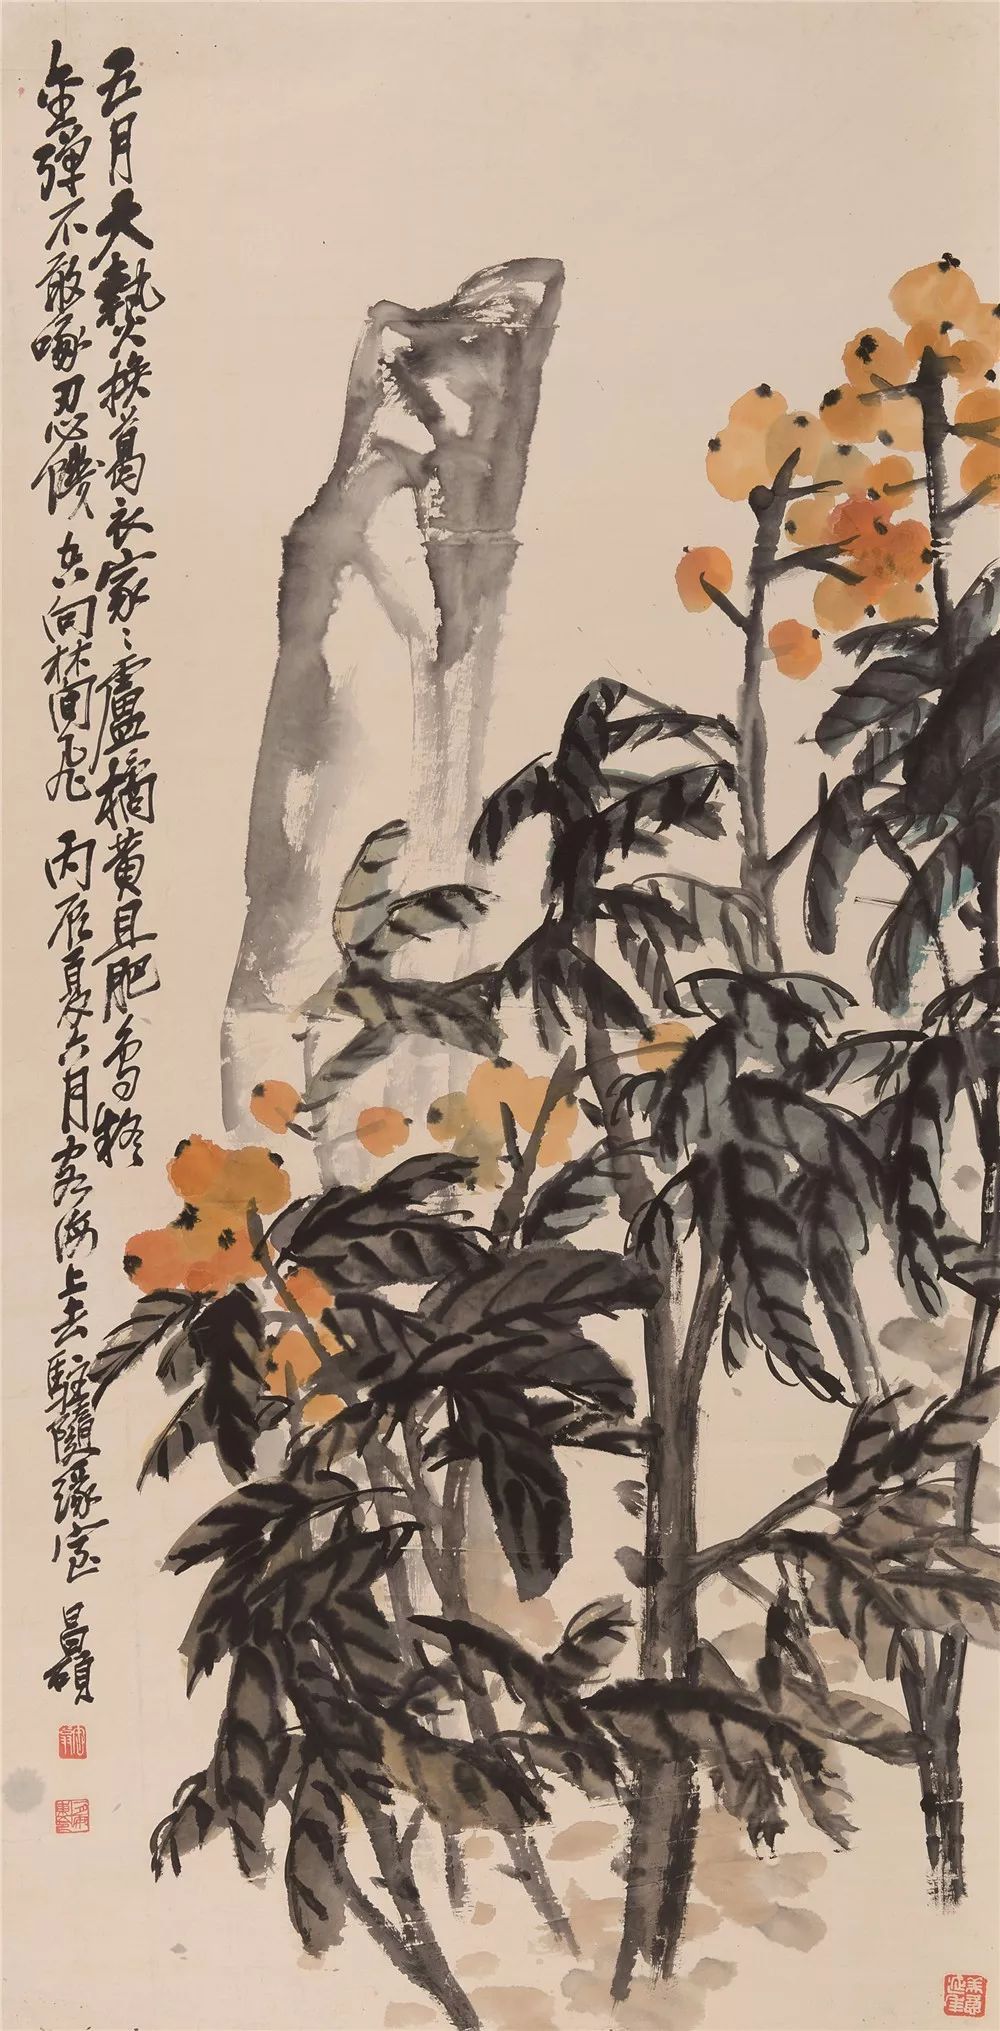 五月天熱換葛衣家〻盧橘黃且肥鳥疑
金彈不敢啄忍饑空向林間飛 丙辰夏六月客海上去駐隨緣室 昌碩